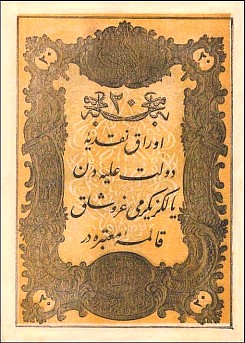 ٢٠ ٢٠
٢٠
اوراق نقدیه
دولت علیه دن
یالکز یکرمی غروشلق
قائمه معتبره در
٢٠ ٢٠